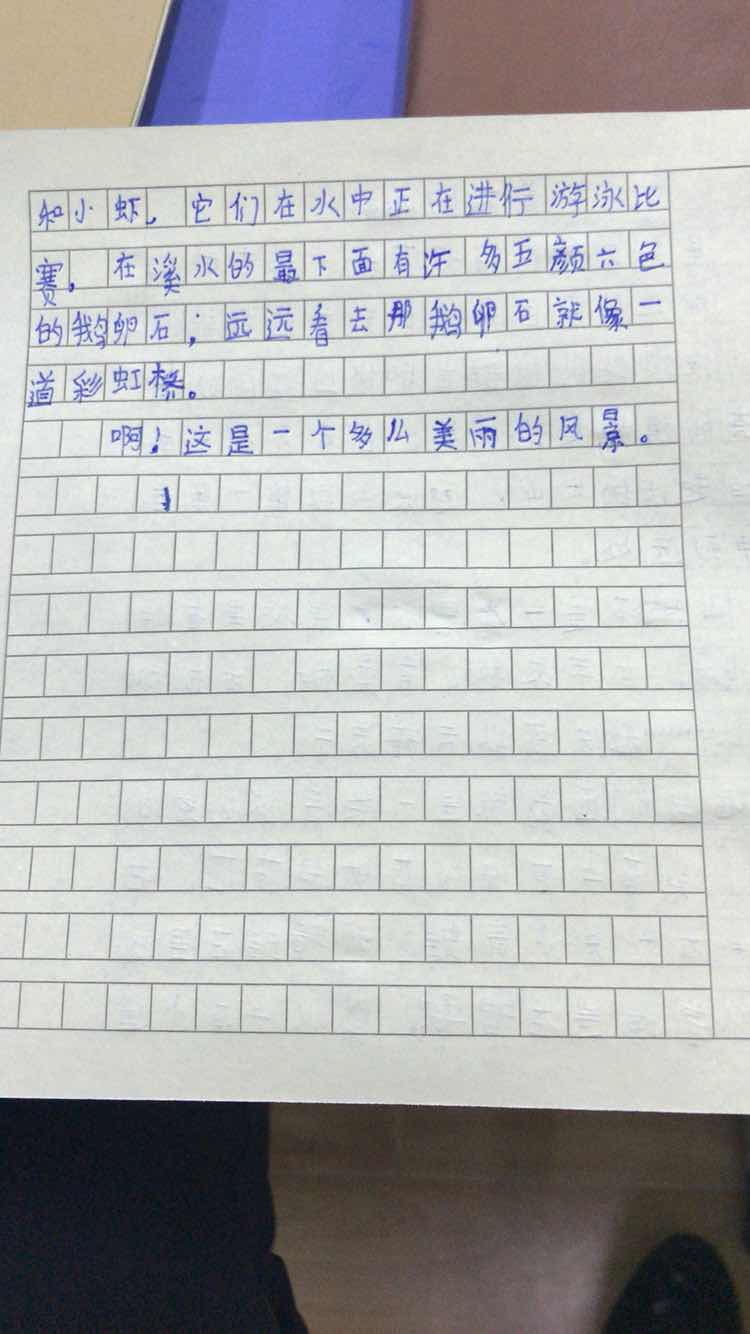 和小虾，它们在水中正在进行游泳比
赛。在溪水的最下面有许多五颜六色
的鹅卵石；远远看去那鹅卵石就像一
道彩虹桥。
啊！这是一个多么美雨的风景。